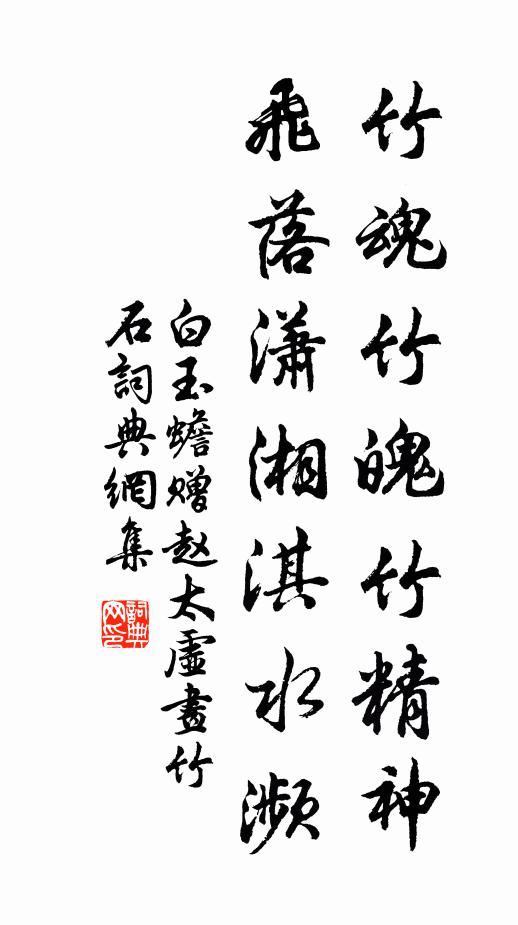 竹魂竹魄竹精神
飛落瀟湘淇水瀕
白玉蟾赠赵太虛畫竹
石詞典網集
詞典网印